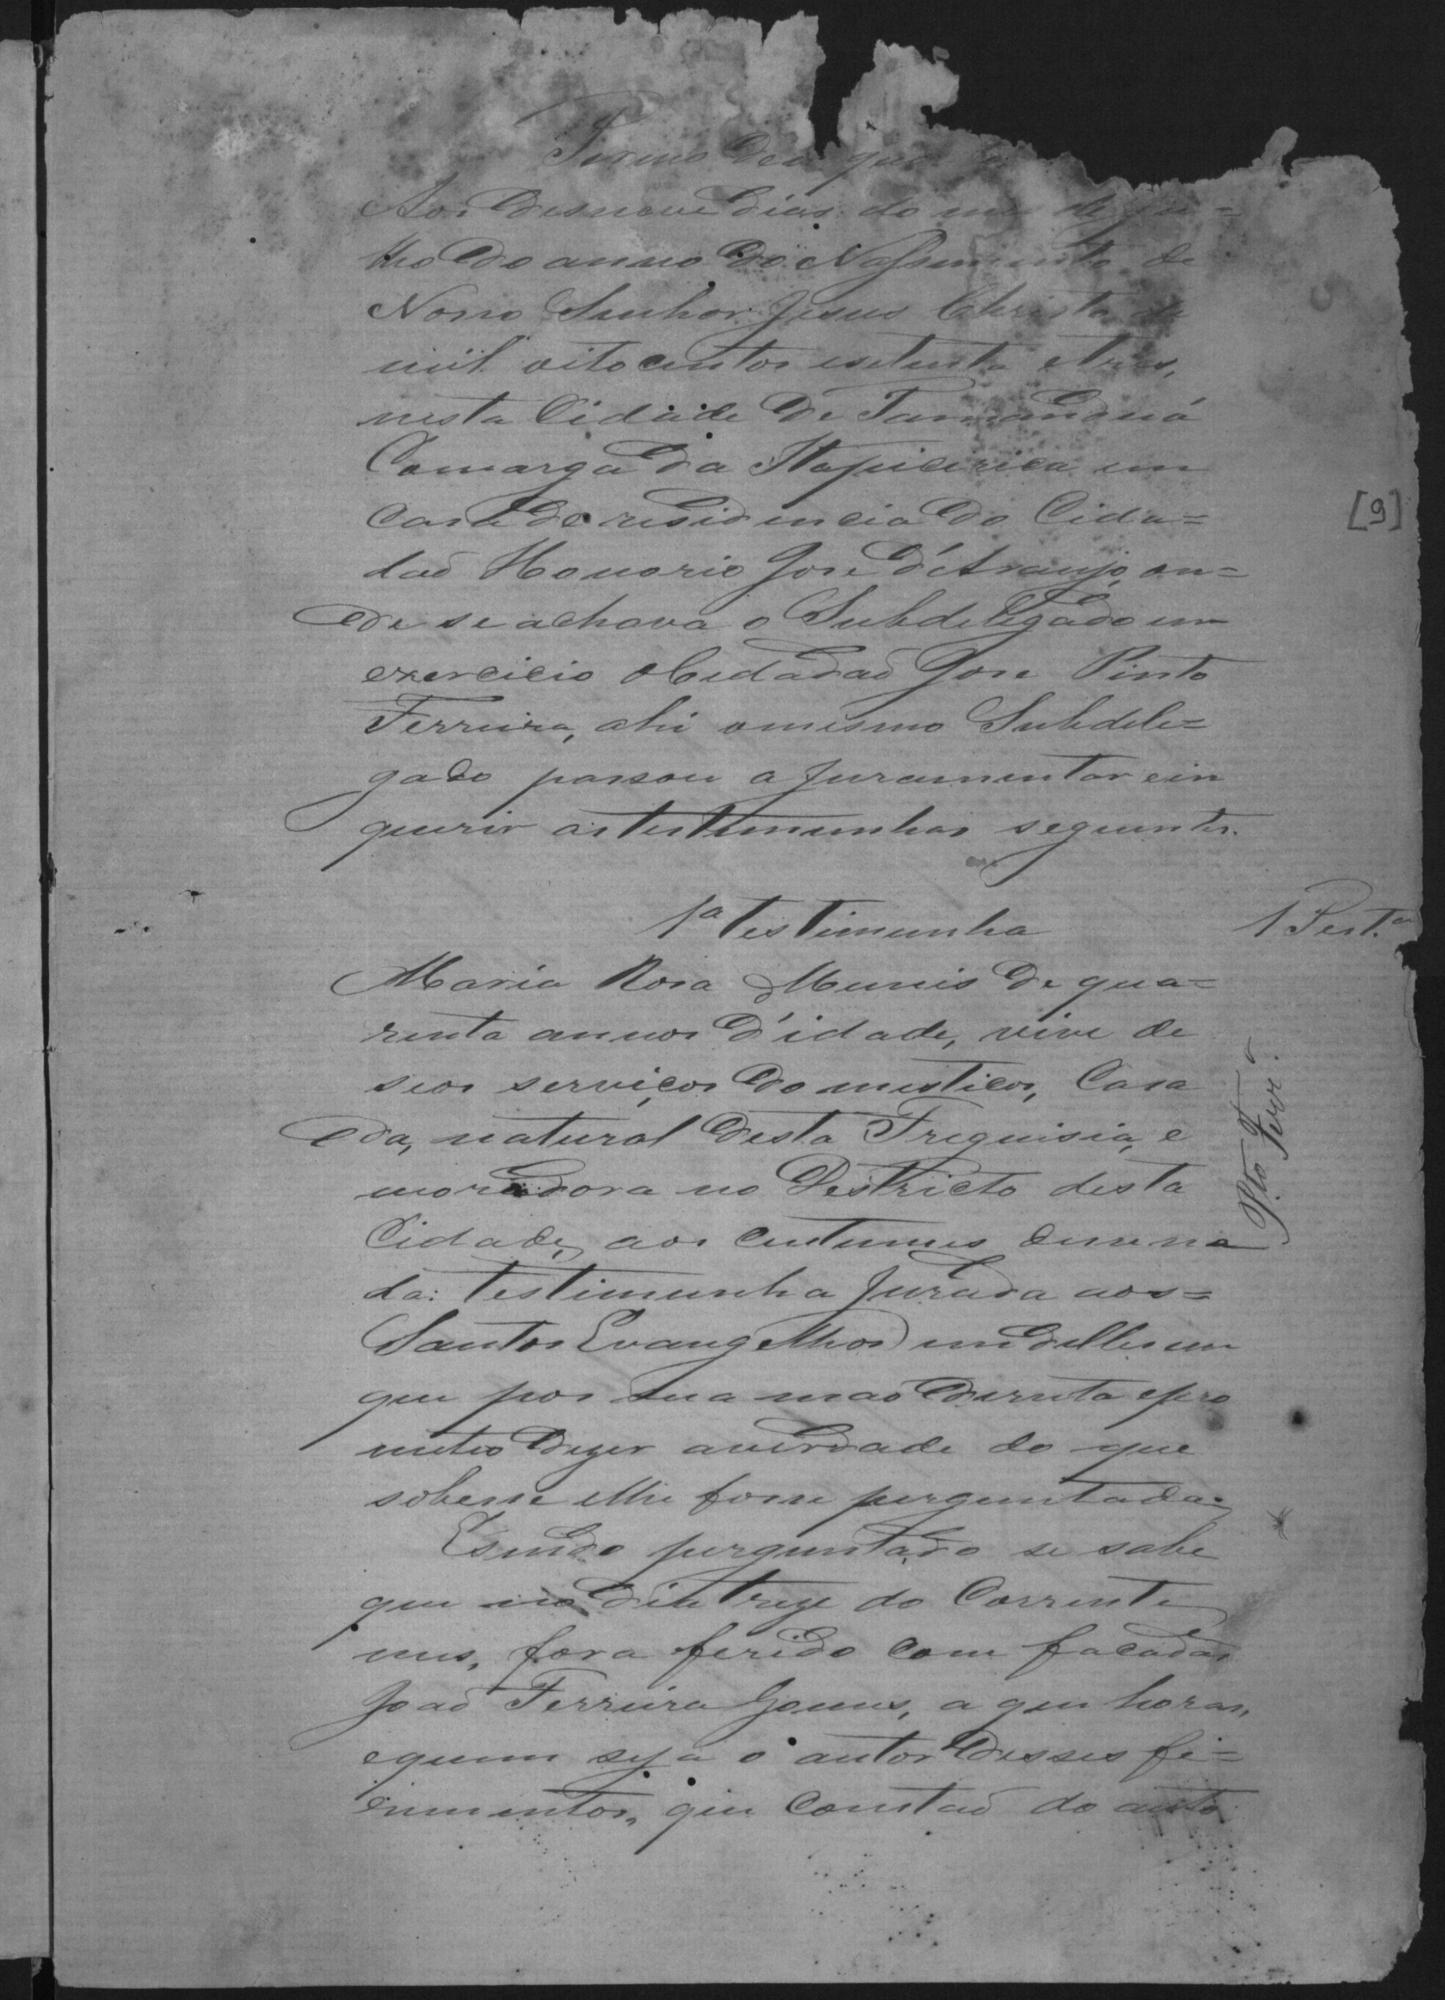 Termo de
Aos desnove dias do mes de ju=
lho do anno do Nassimento de
Nosso Senhor Jesus Christo de
mil oito centos esetenta etres,
nesta Cidade de Tamanduá
Comarga da Itapicirica em
Casa de residencia do Cida=
daõ Honorio Jose d'Araujo, on=
de se achava o Subdelegado em
exercicio o Cidadaõ Jose Pinto
Ferreira, ahi omesmo Subdele=
gado passou a juramentar ein
querir as testimunhas seguintes.
1ª testimunha
1 Test.ª
Maria Rosa Munis de qua=
renta annos d'idade, vive de
seos serviços domesticos, Casa
da, natural desta Freguisia, e
moradora no Destricto desta
Cidade, aos custumes disse na
da: testimunha jurada aos=
Santos Evangelhos em dilles em
que pos sua maõ direita epro
meteo dizer averdade do que
sobesse elhe fosse perguntada.
Esendo perguntado se sabe
que no dia treze do Corrente
mes, fora ferido com facadas
Joaõ Ferreira Gomes, a que horas,
equem seja o autor desses fe=
rimentos, que Constaõ do auto
P.to Ferr.ª
[9]